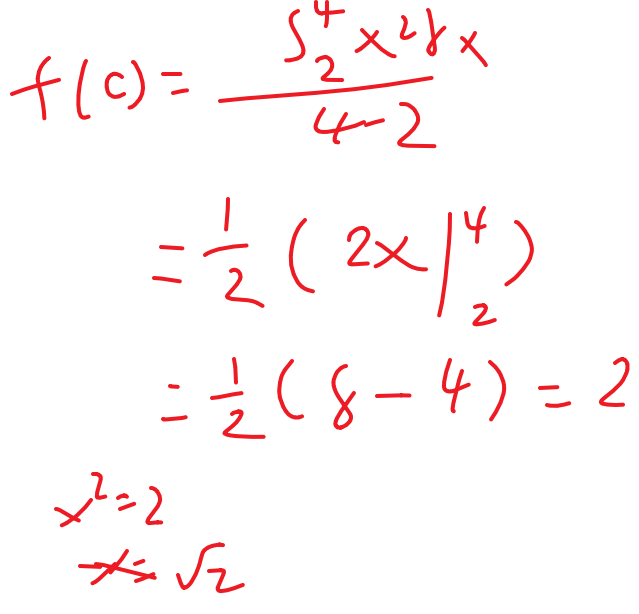 f(c) = \frac{\int_2^4 x^2 dx}{4-2}
= \frac{1}{2} ( 2x |_2^4 )
= \frac{1}{2} ( 8 - 4 ) = 2
x^2 = 2
x = \sqrt{2}